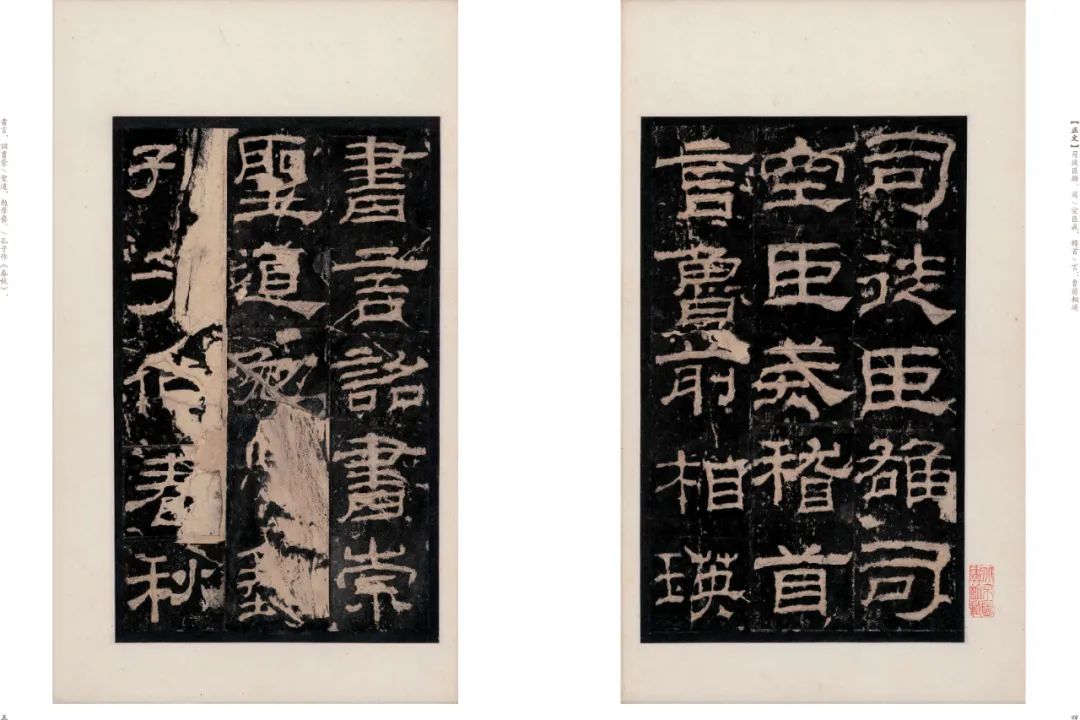 【正文】司徒臣雄、司/空臣戒，稽首/言：魯前相瑛
司徒臣雄司
空臣戒稽首
言魯前相瑛
四
書言詔書崇
聖道勉藝
孔子作春秋
書言，詔書崇/聖道，勉學藝，/孔子作《春秋》，
五